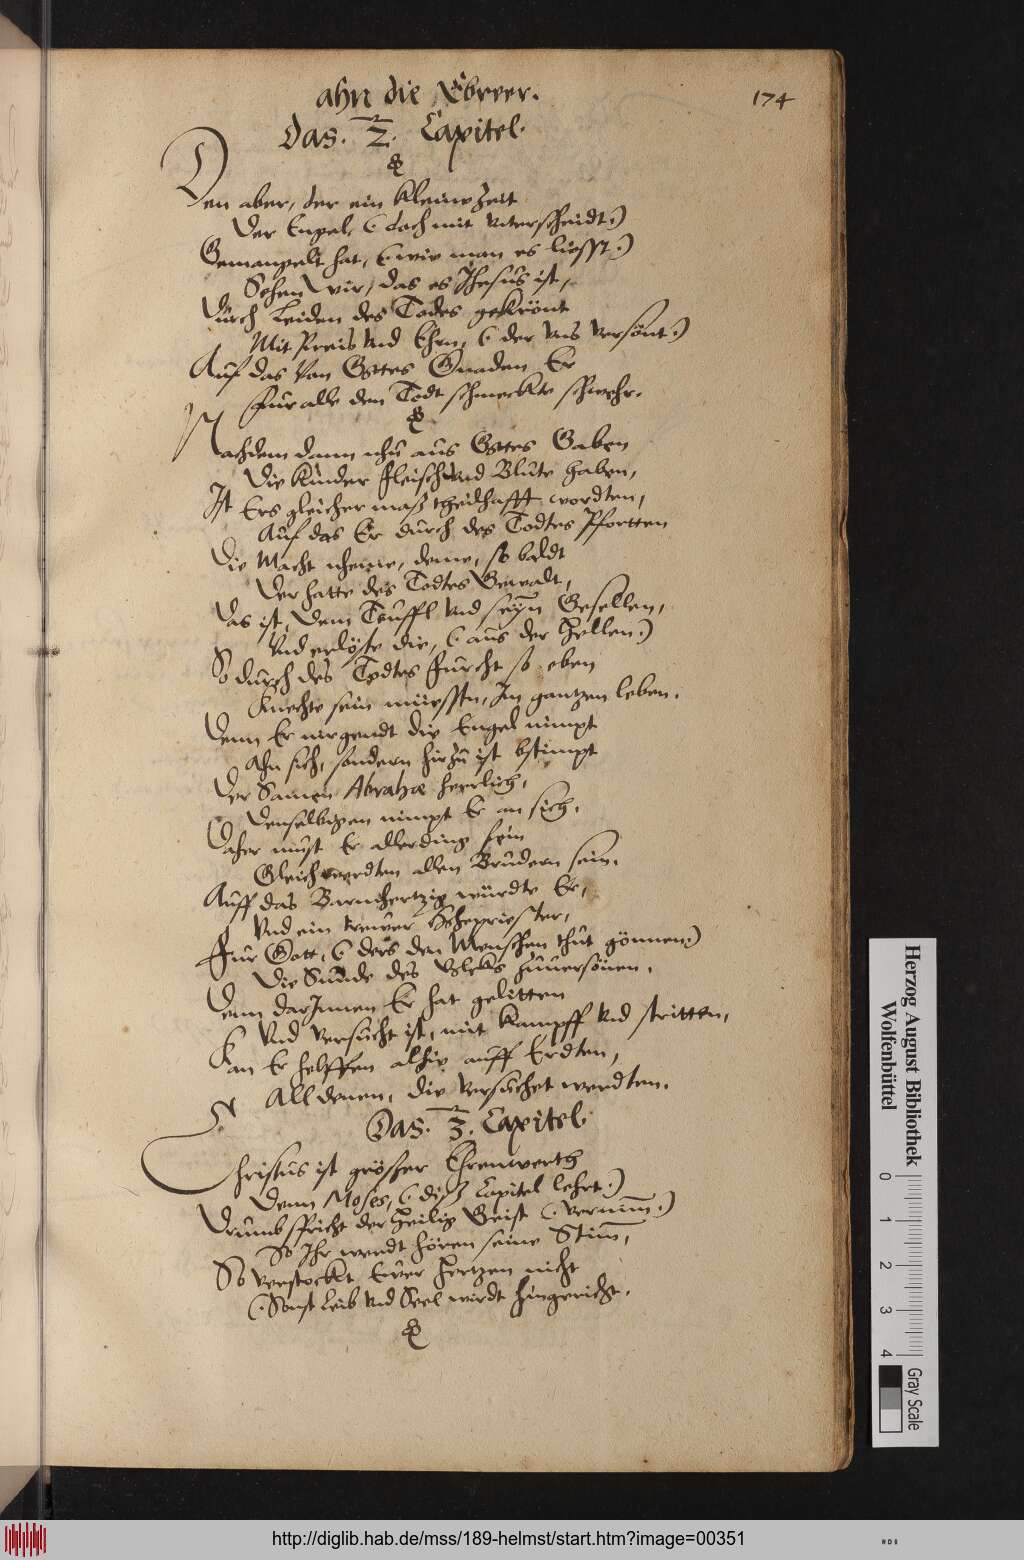 ahn die Ebreer.
174
Das. 2. Capitel.
Den aber, der ein kleine Zeit
Der Engel, (: doch mit unterscheidt:)
Gemangelt hat, (: wie man es liesst:)
Sehen wir, das es Jhesus ist,
Durch leiden des Todes gekrönt
Mit Preis und Ehrn, (: der uns versönt:)
Auf das von Gottes Gnaden Er
Fur alle den Todt schmeckte schwehr.
Nachdem dann nhu aus Gottes Gaben
Die Kinder Fleisch und Blute haben,
Ist Ers gleicher mass theilhafft wordten,
Auf das Er durch des Todtes Pfortten
Die Macht nheme, deme, so baldt
Der hatte des Todtes Gewalt,
Das ist, dem Teuffl und seyn Gesellen,
Und erlöste die, (: aus der Hellen:)
So durch des Todtes Furcht so eben
Knechte sein müessten, Im gantzen leben.
Denn Er nirgendt die Engel nimpt
Ahn sich, sondern hirzu ist bstimpt
Der Samen Abrahæ herrlich,
Denselbigen nimpt Er an sich.
Daher must Er allerding fein
Gleich werdten allen Brüdern sein.
Auff das Barmhertzig würdte Er,
Und ein trewer Hohepriester,
Fur Gott, (: ders den Menschen thut gönnen:)
Die Sünde des Volcks zuversönen.
Denn darInnen Er hat gelitten
Und versucht ist, mit Kampff und stritten,
Kan Er helffen alhie auff Erdten,
All denen, die versuchet werdten.
Das. 3. Capitel.
Christus ist grösser Ehrenwerth
Denn Moses, (: diss Capitel lehrt:)
Drumb spricht der Heilig Geist (: vernimm:)
So Ihr werdt hören seine Stimm,
So verstockt Ewer Hertzen nicht
(: Sonst leib und Seel wirdt hingericht.
Herzog August Bibliothek
Wolfenbüttel
0 1 2 3 4
Gray Scale
http://diglib.hab.de/mss/189-helmst/start.htm?image=00351